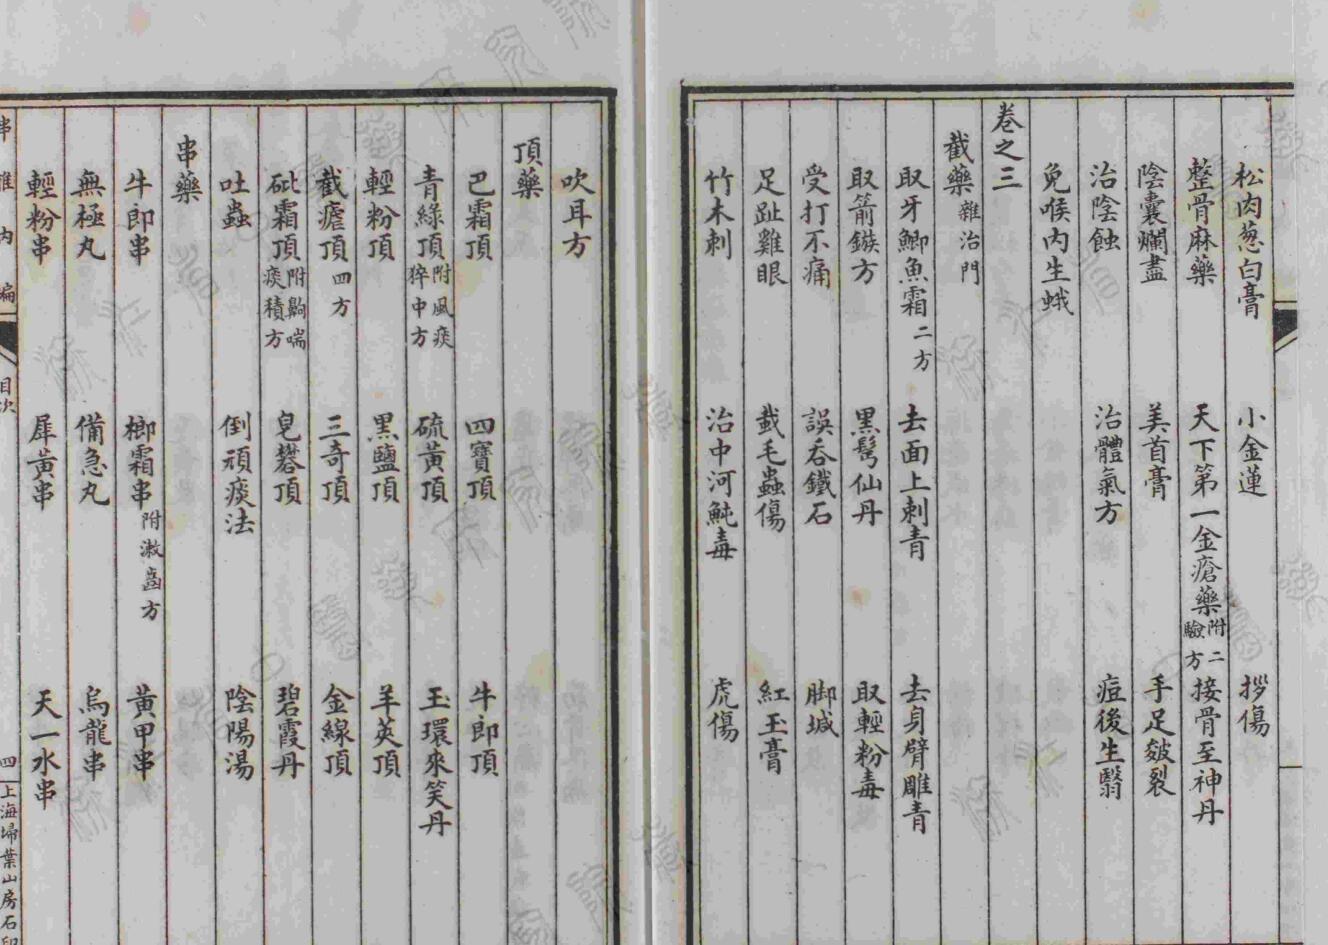 松肉葱白膏 小金蓮 拶傷
整骨麻藥 天下第一金瘡藥附二驗方 接骨至神丹
陰囊爛盡 美首膏 手足皴裂
治陰蝕 治體氣方 痘後生翳
兔喉内生蛾
卷之三
截藥雜治門
取牙鯽魚霜二方 去面上刺青 去身臂雕青
取箭鏃方 黑髩仙丹 取輕粉毒
受打不痛 誤吞鐵石 脚堿
足趾雞眼 蛓毛蟲傷 紅玉膏
竹木刺 治中河魨毒 虎傷
吹耳方
頂藥
巴霜頂 四寶頂 牛郎頂
青綠頂附風痰猝中方 硫黃頂 玉環來笑丹
輕粉頂 黑鹽頂 羊莢頂
截瘧頂四方 三奇頂 金線頂
砒霜頂附齁喘痰積方 皂礬頂 碧霞丹
吐蟲 倒頑痰法 陰陽湯
串藥
牛郎串 榔霜串附漱齒方 黃甲串
無極丸 備急丸 烏龍串
輕粉串 犀黃串 天一水串
串雅内編 目次 四 上海埽葉山房石印